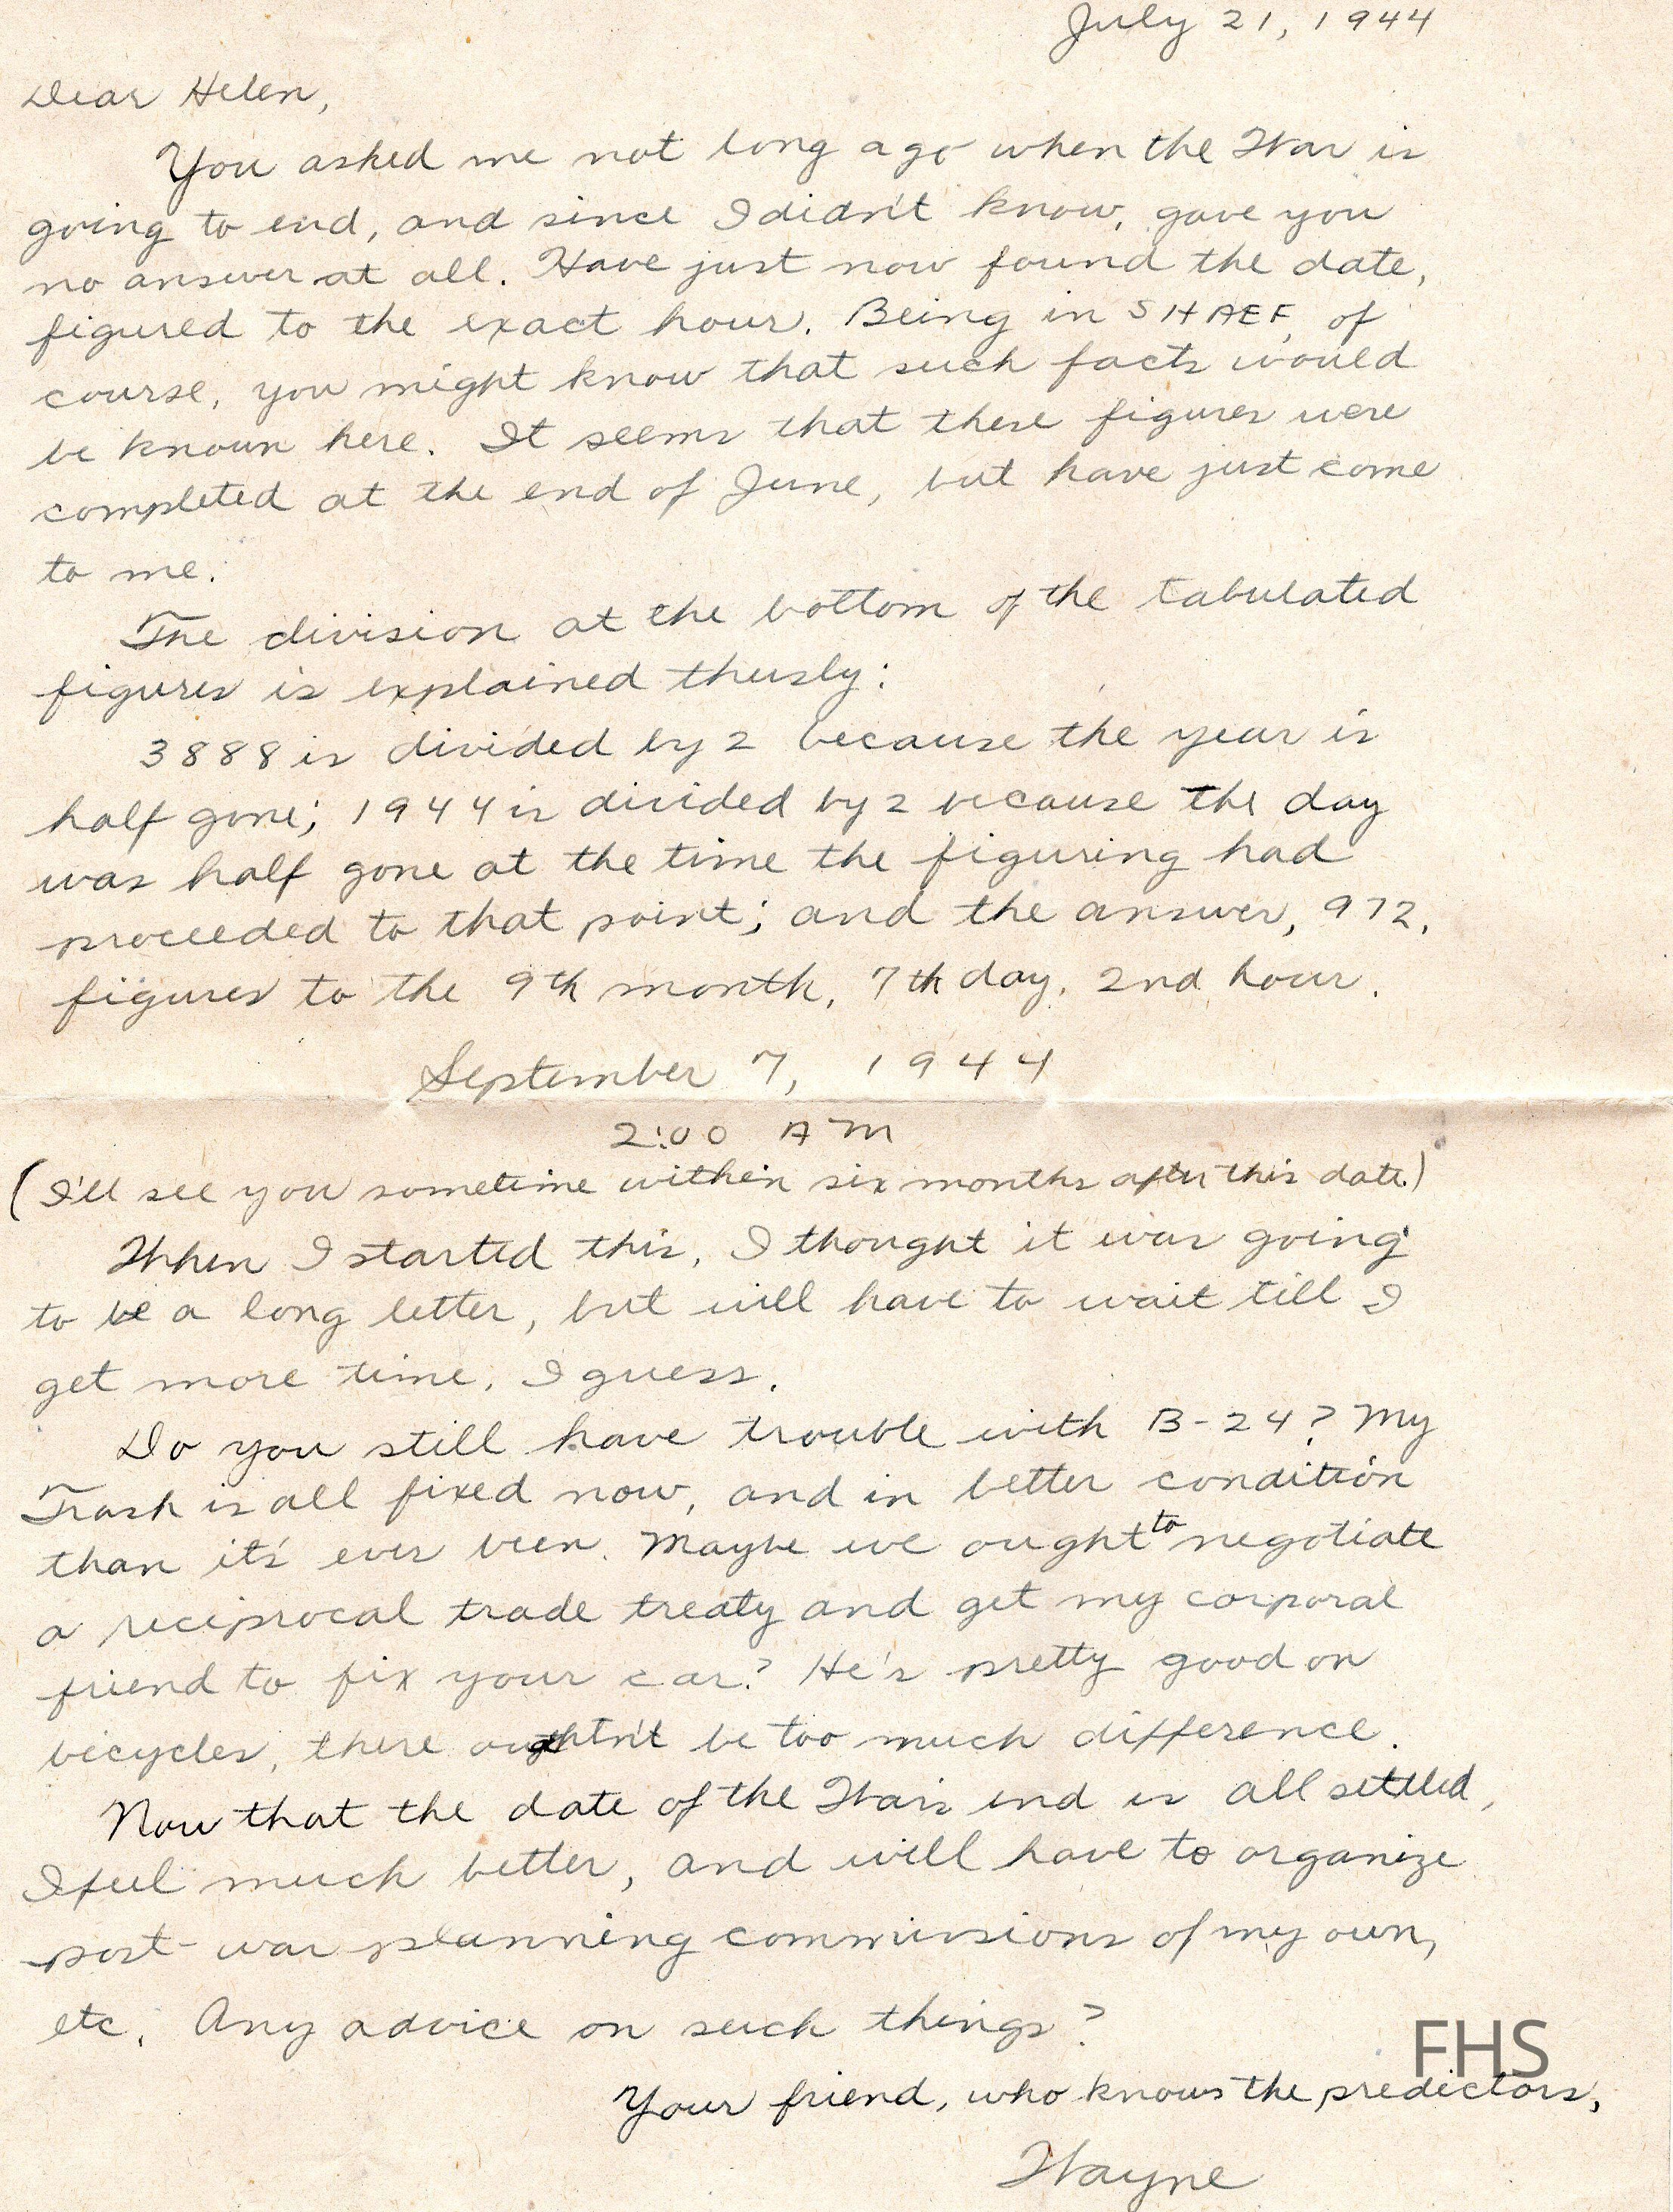 July 21, 1944
Dear Helen,
You asked me not long ago when the War is
going to end, and since I didn't know, gave you
no answer at all. Have just now found the date,
figured to the exact hour. Being in SHAEF, of
course, you might know that such facts would
be known here. It seems that these figures were
completed at the end of June, but have just come
to me.
The division at the bottom of the tabulated
figures is explained thusly:
3888 is divided by 2 because the year is
half gone; 1944 is divided by 2 because the day
was half gone at the time the figuring had
proceeded to that point; and the answer, 972,
figures to the 9th month, 7th day, 2nd hour.
September 7, 1944
2:00 AM
(I'll see you sometime within six months after this date.)
When I started this, I thought it was going
to be a long letter, but will have to wait till I
get more time, I guess.
Do you still have trouble with B-24? My
Trash is all fixed now, and in better condition
than it's ever been. Maybe we ought to negotiate
a reciprocal trade treaty and get my corporal
friend to fix your car? He's pretty good on
bicycles, there oughtn't be too much difference.
Now that the date of the War's end is all settled,
I feel much better, and will have to organize
post-war planning commissions of my own,
etc. Any advice on such things?
FHS
Your friend, who knows the predictors,
Wayne